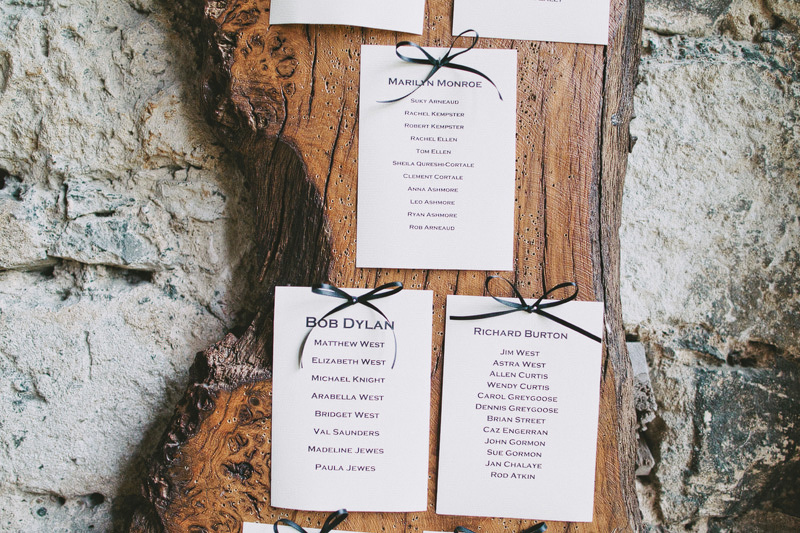 Marilyn Monroe
Suky Arneaud
Rachel Kempster
Robert Kempster
Rachel Ellen
Tom Ellen
Sheila Qureshi-Cortale
Clement Cortale
Anna Ashmore
Leo Ashmore
Ryan Ashmore
Rob Arneaud
Bob Dylan
Matthew West
Elizabeth West
Michael Knight
Arabella West
Bridget West
Val Saunders
Madeline Jewes
Paula Jewes
Richard Burton
Jim West
Astra West
Allen Curtis
Wendy Curtis
Carol Greygoose
Dennis Greygoose
Brian Street
Caz Engerran
John Gormon
Sue Gormon
Jan Chalaye
Rod Atkin